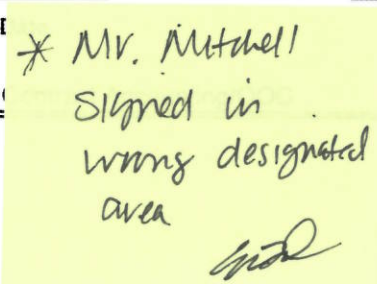 * Mr. Mitchell
Signed in
wrong designated
area